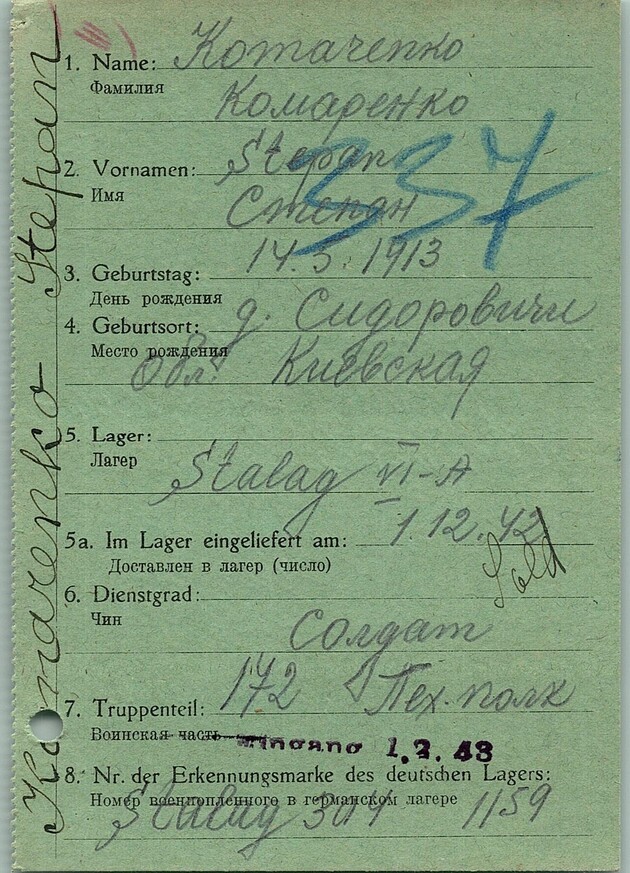 1. Name: Котаченко
Фамилия
Комаренко
2. Vornamen: Stepan
Имя
Степан
337
3. Geburtstag: 14.5.1913
День рождения
4. Geburtsort: д. Сидоровичи
Место рождения
Обл. Киевская
5. Lager:
Лагер
Stalag VI-A
5a. Im Lager eingeliefert am: 1.12.42
Доставлен в лагер (число)
Sold
6. Dienstgrad:
Чин
Солдат
7. Truppenteil: 172 Пех. полк
Воинская часть
Eingang 1.2.43
8. Nr. der Erkennungsmarke des deutschen Lagers:
Номер военнопленного в германском лагере
Stalag 304 1159
Komarenko Stepan